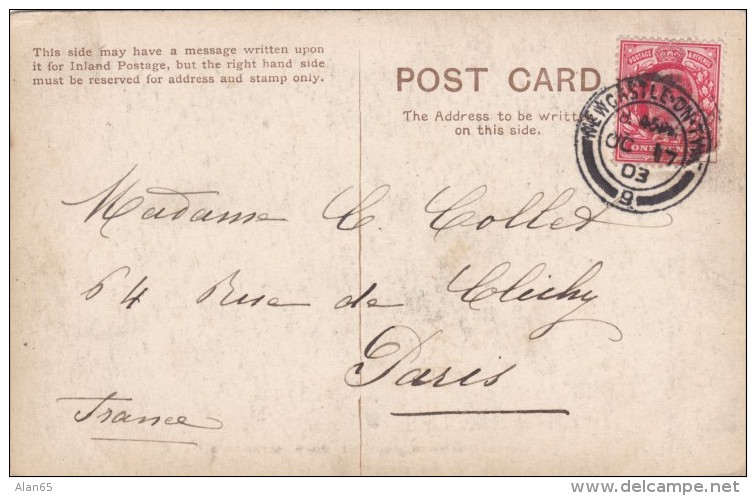 This side may have a message written upon
it for Inland Postage, but the right hand side
must be reserved for address and stamp only.
POST CARD
The Address to be writt
on this side.
POSTAGE & REVENUE
NEWCASTLE-ON-TYNE
OC 17
03
9
Madame C. Collet
64 Rue de Clichy
Paris
France
Alan65
delcampe.net